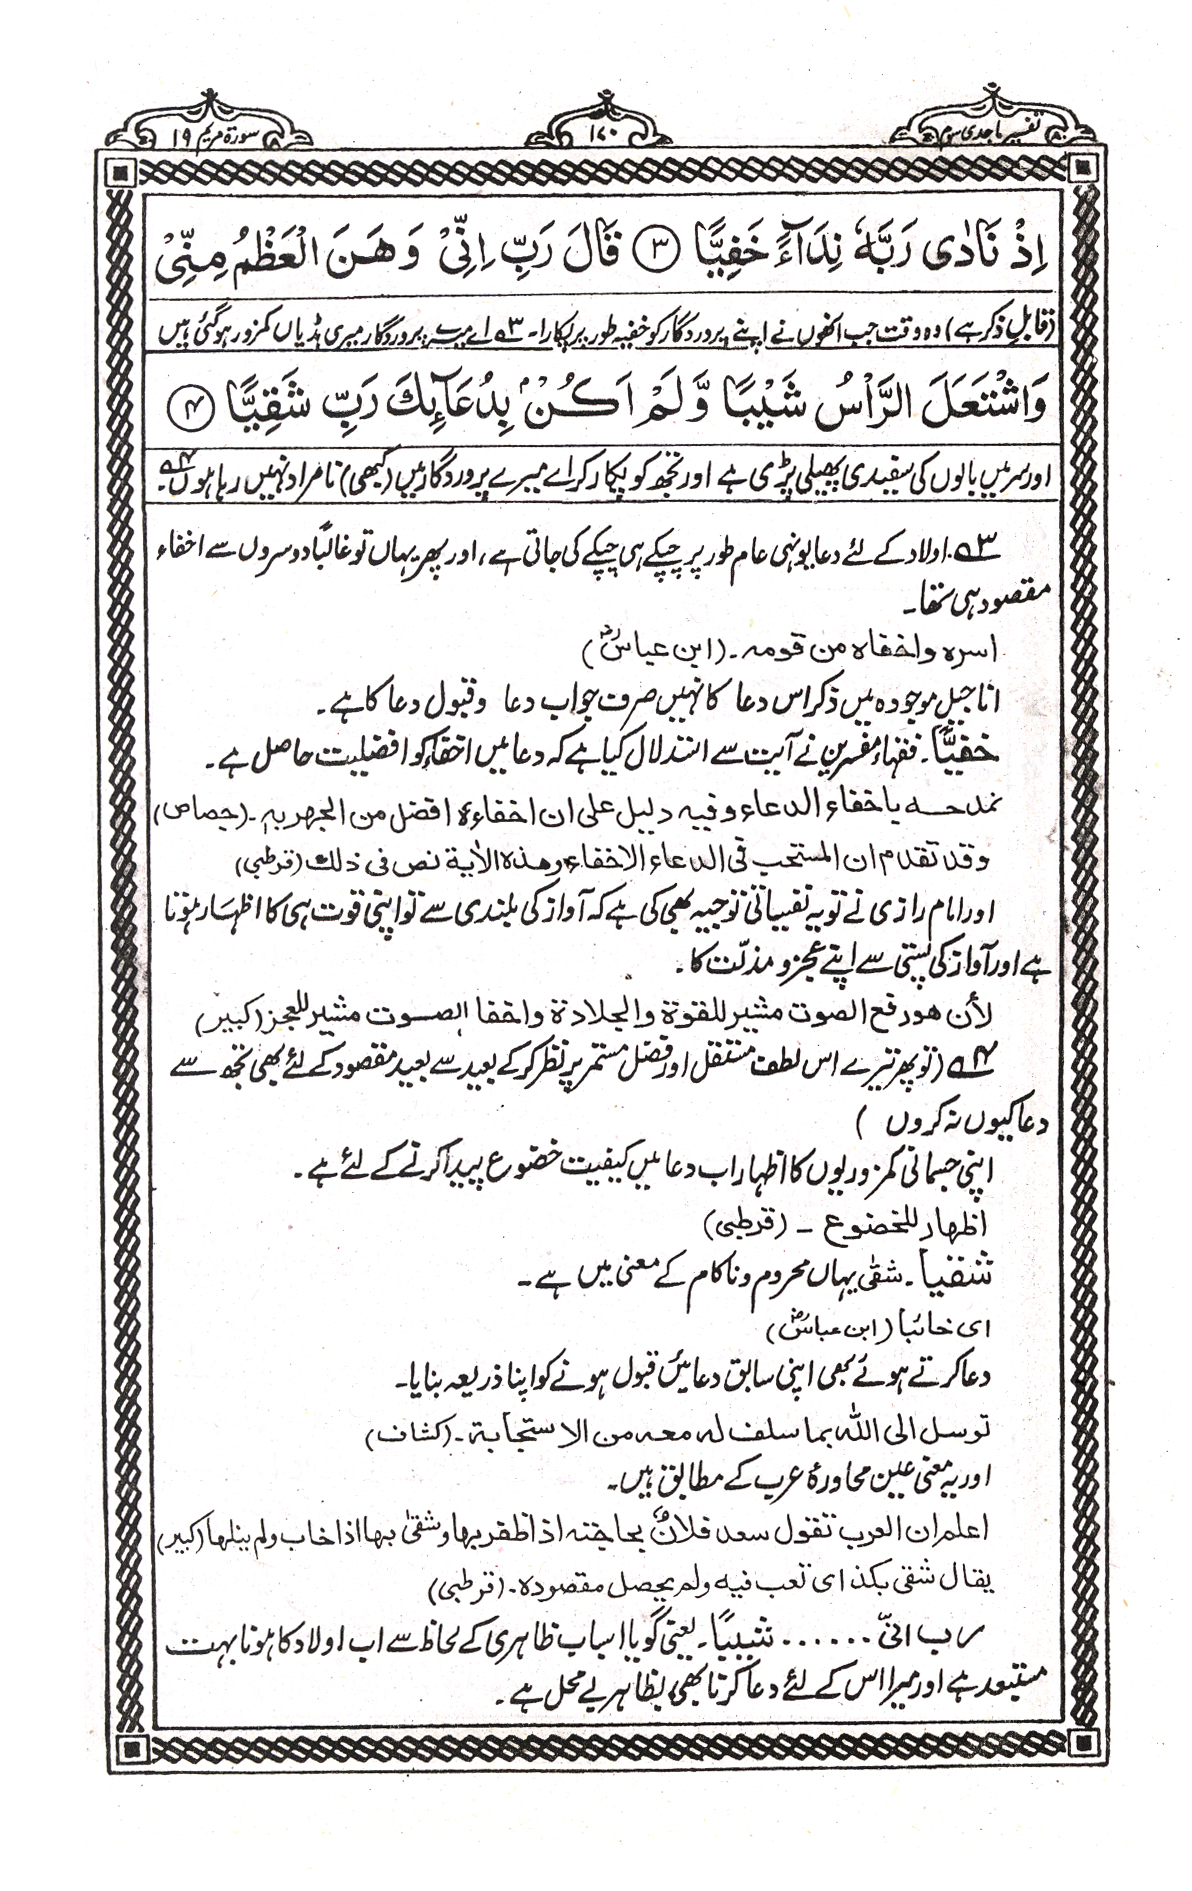 تفسیر ماجدی سوم
۱۷۰
سورۃ مریم ۱۹
اِذْ نَادٰی رَبَّہٗ نِدَآءً خَفِیًّا ۳ قَالَ رَبِّ اِنِّیْ وَھَنَ الْعَظْمُ مِنِّیْ
(قابلِ ذکر ہے) وہ وقت جب انھوں نے اپنے پروردگار کو خفیہ طور پر پکارا۔ ۳ے اے میرے پروردگار میری ہڈیاں کمزور ہوگئی ہیں
وَاشْتَعَلَ الرَّاْسُ شَیْبًا وَّلَمْ اَکُنْۢ بِدُعَآئِکَ رَبِّ شَقِیًّا ۴
اور سر میں بالوں کی سفیدی پھیلی پڑی ہے اور تجھ کو پکار کر اے میرے پروردگار میں (کبھی) نامراد نہیں رہا ہوں ۴ے
۳ے۔ اولاد کے لئے دعا یونہی عام طور پر چپکے ہی چپکے کی جاتی ہے، اور پھر یہاں تو غالبًا دوسروں سے اخفاء
مقصود ہی تھا۔
اسرہ واخفاہ من قومہ۔ (ابن عباسؓ)
اناجیل موجودہ میں ذکر اس دعا کا نہیں صرف جواب دعا وقبول دعا کا ہے۔
خفیًّا۔ فقہاء مفسرین نے آیت سے استدلال کیا ہے کہ دعا میں اخفاء کو افضلیت حاصل ہے۔
نمدحہ باخفاء الدعاء وفیہ دلیل علی ان اخفاءہ افضل من الجھر بہ۔ (جصاص)
وقد تقدم ان المستحب فی الدعاء الاخفاء وھذہ الاٰیة نص فی ذلک (قرطبی)
اور امام رازی نے تو یہ نفسیاتی توجیہ بھی کی ہے کہ آواز کی بلندی سے تو اپنی قوت ہی کا اظہار ہوتا
ہے اور آواز کی پستی سے اپنے عجز و مذلّت کا۔
لأن ھو رفع الصوت مشیر للقوة والجلادة واخفا الصوت مشیر للعجز (کبیر)
۴ے (تو پھر تیرے اس لطف مستقل اور فضل مستمر پر نظر کرکے بعید سے بعید مقصود کے لئے بھی تجھ سے
دعا کیوں نہ کروں )
اپنی جسمانی کمزوریوں کا اظہار اب دعا میں کیفیت خضوع پیدا کرنے کے لئے ہے۔
اظھار للخضوع ۔ (قرطبی)
شقیا۔ شقی یہاں محروم وناکام کے معنی میں ہے۔
ای خائبا (ابن عباسؓ)
دعا کرتے ہوئے بھی اپنی سابق دعائیں قبول ہونے کو اپنا ذریعہ بنایا۔
توسل الی اللّٰہ بما سلف لہ معہ من الاستجابة۔ (کشاف)
اور یہ معنی عین محاورۂ عرب کے مطابق ہیں۔
اعلم ان العرب تقول سعد فلانٌ بحاجتہ اذ اظفر بھا وشقیٰ بھا اذا خاب ولم ینلھا (کبیر)
یقال شقی بکذ ای تعب فیہ ولم یحصل مقصودہ۔ (قرطبی)
رب انیّ ...... شیبًا۔ یعنی گویا اسباب ظاہری کے لحاظ سے اب اولاد کا ہونا بہت
مستبعد ہے اور میرا اس کے لئے دعا کرنا بھی بظاہر بے محل ہے۔